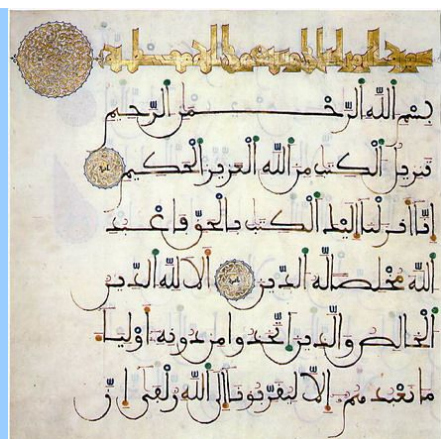 بِسْمِ اللَّهِ الرَّحْمَٰنِ الرَّحِيمِ
تَنزِيلُ الْكِتَٰبِ مِنَ اللَّهِ الْعَزِيزِ الْحَكِيمِ
إِنَّا أَنزَلْنَا إِلَيْكَ الْكِتَٰبَ بِالْحَقِّ فَاعْبُدِ
اللَّهَ مُخْلِصًا لَّهُ الدِّينَ أَلَا لِلَّهِ الدِّينُ
الْخَالِصُ وَالَّذِينَ اتَّخَذُوا مِن دُونِهِ أَوْلِيَاءَ
مَا نَعْبُدُهُمْ إِلَّا لِيُقَرِّبُونَا إِلَى اللَّهِ زُلْفَىٰ إِنَّ